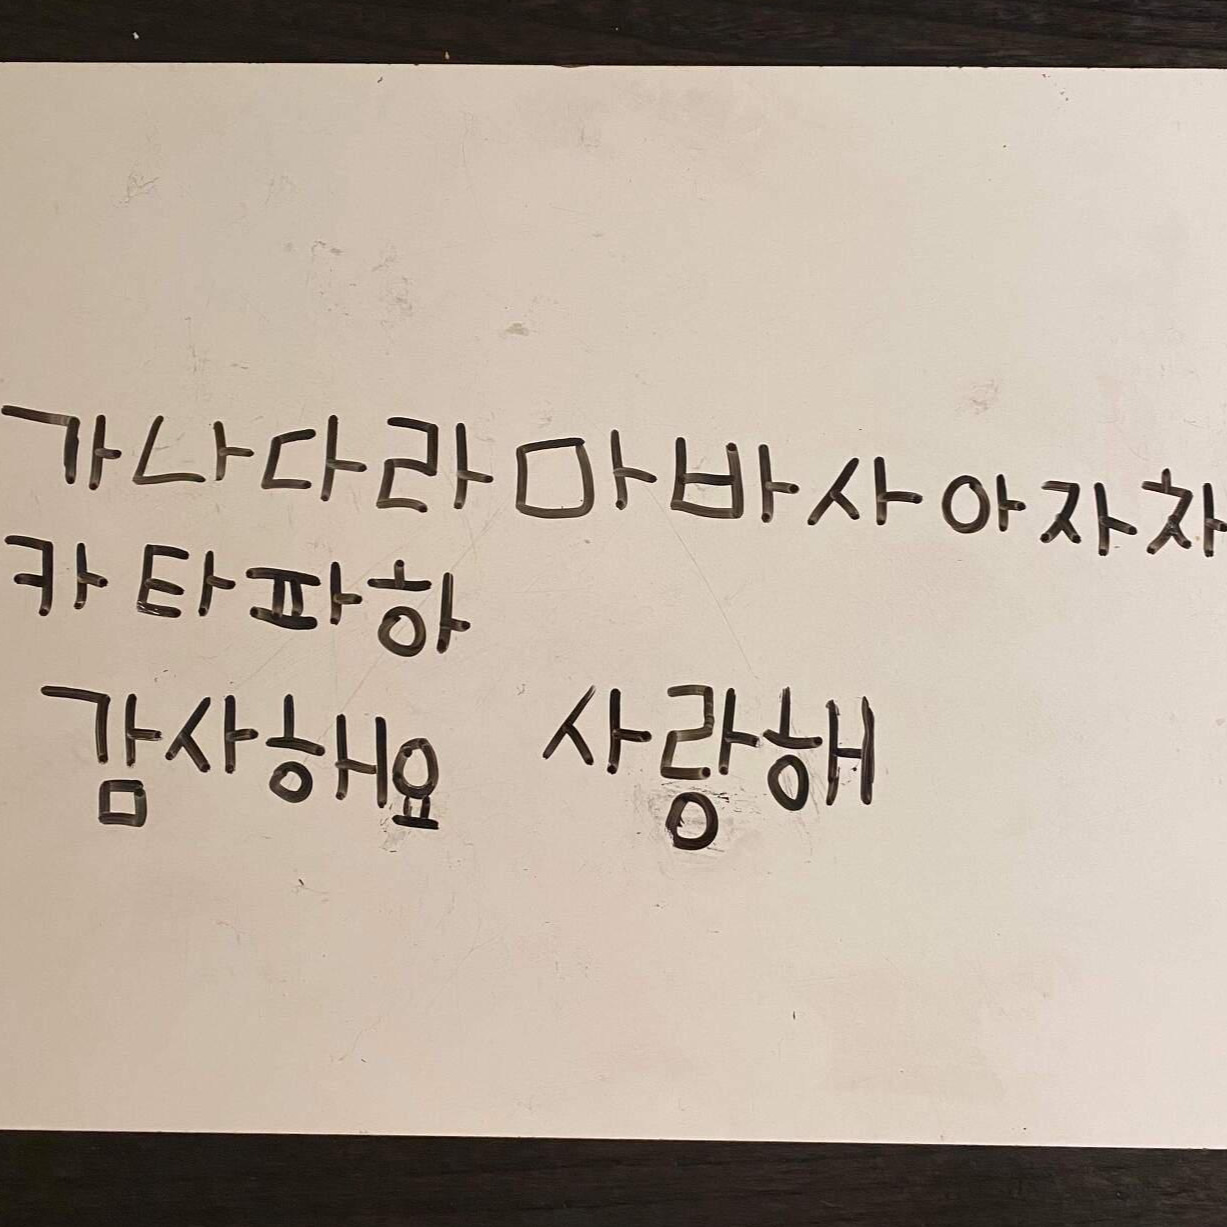 가나다라마바사아자차
카타파하
감사해요 사랑해